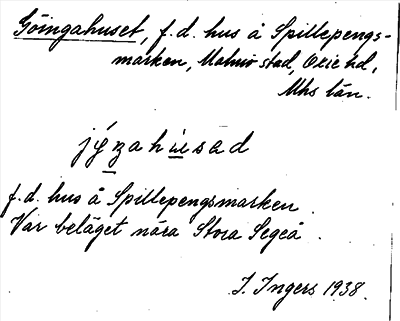 Göingahuset, f.d. hus å Spillepengs-
marken, Malmö stad, Oxie hd,
Mhs län.
jýzahùsad
f.d. hus å Spillepengsmarken.
Var beläget nära Stora Segeå.
I. Ingers 1938.